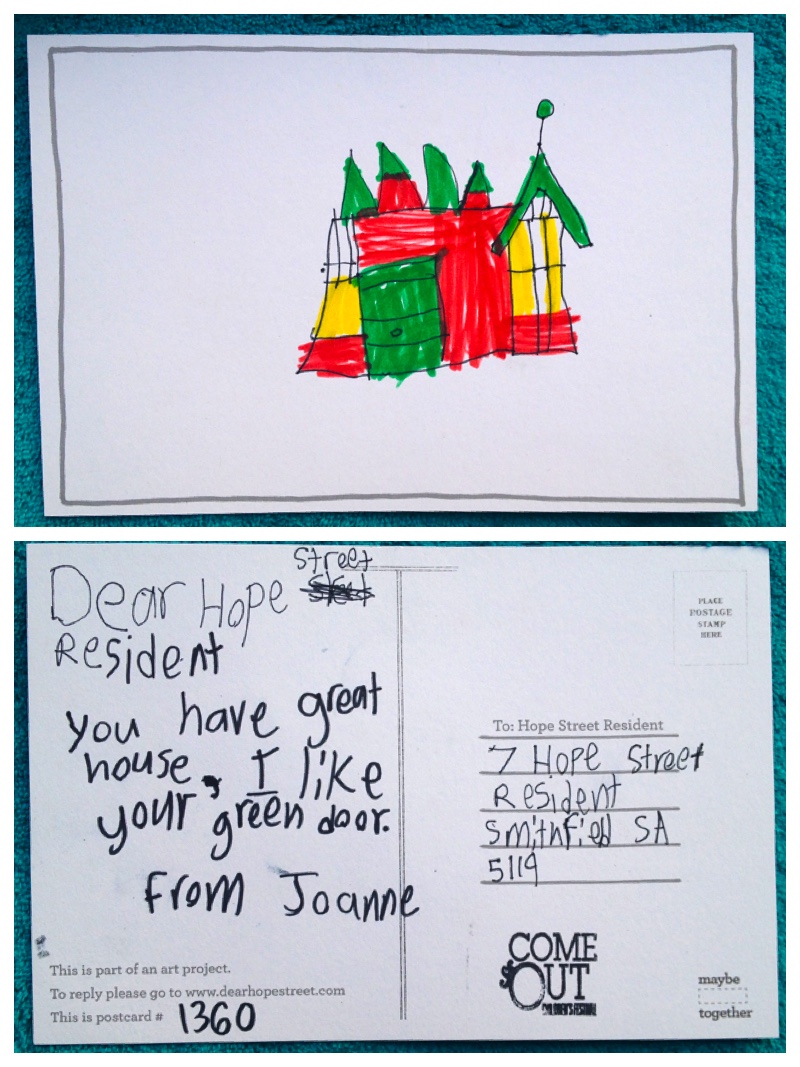 Street
Dear Hope
Resident
you have great
house, I like
your green door.
from Joanne
This is part of an art project.
To reply please go to www.dearhopestreet.com
This is postcard # 1360
PLACE
POSTAGE
STAMP
HERE
To: Hope Street Resident
7 Hope Street
Resident
Smithfield SA
5114
COME
OUT
CHILDREN'S FESTIVAL
maybe
together